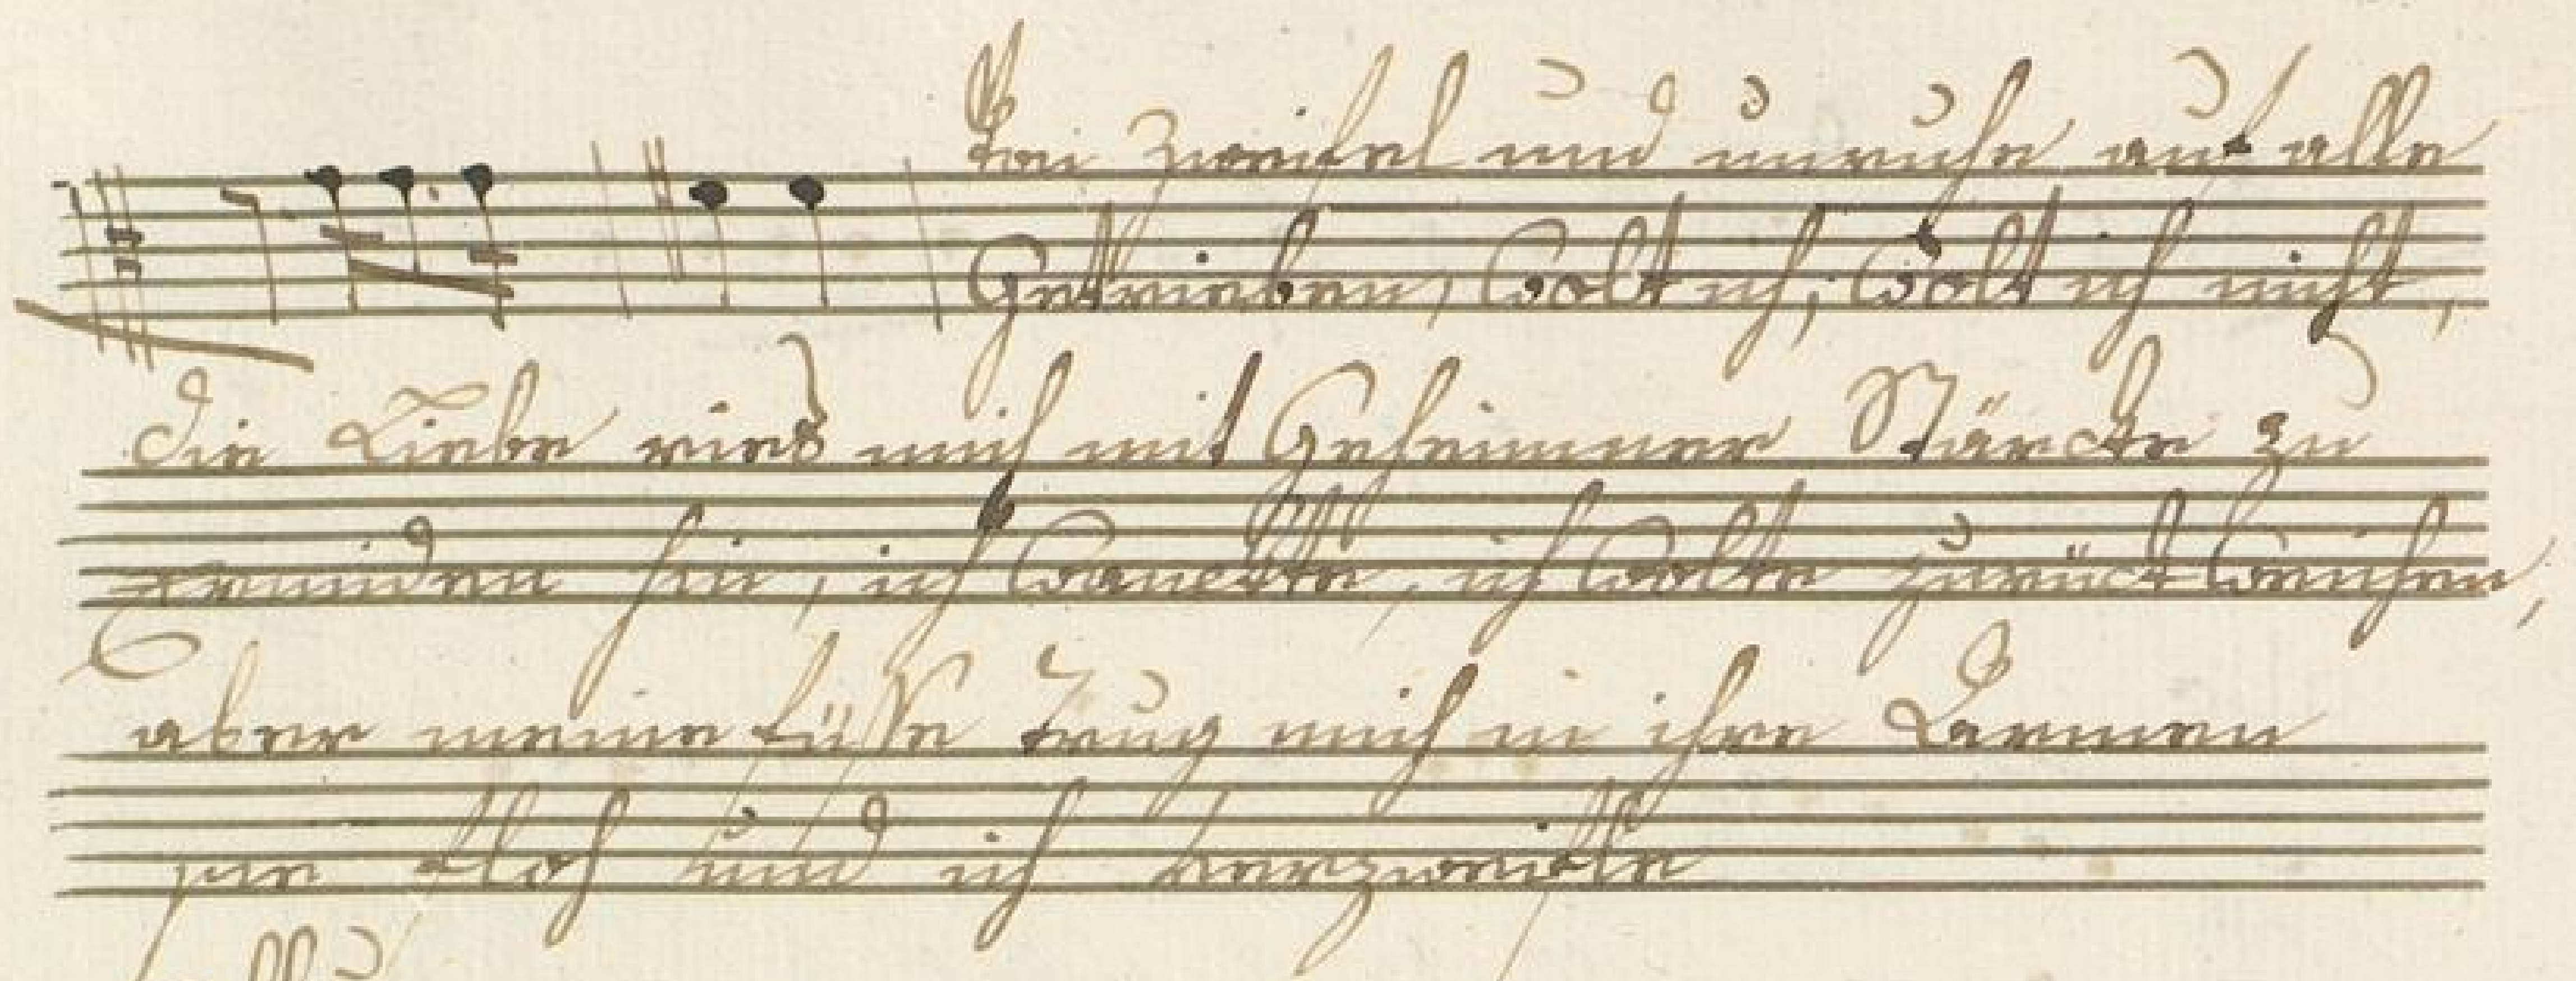 Von Zweifel und unruhe auf alle
Getrieben, Wolt ich, Wolt ich nicht,
die Liebe ries mich mit Geheimner Stärcke zu
Freunden hin, ich Wanckte, ich Wolte zurück Weichen,
aber meine füsse trug mich in ihre Larmen
sie floh und ich verzweifle